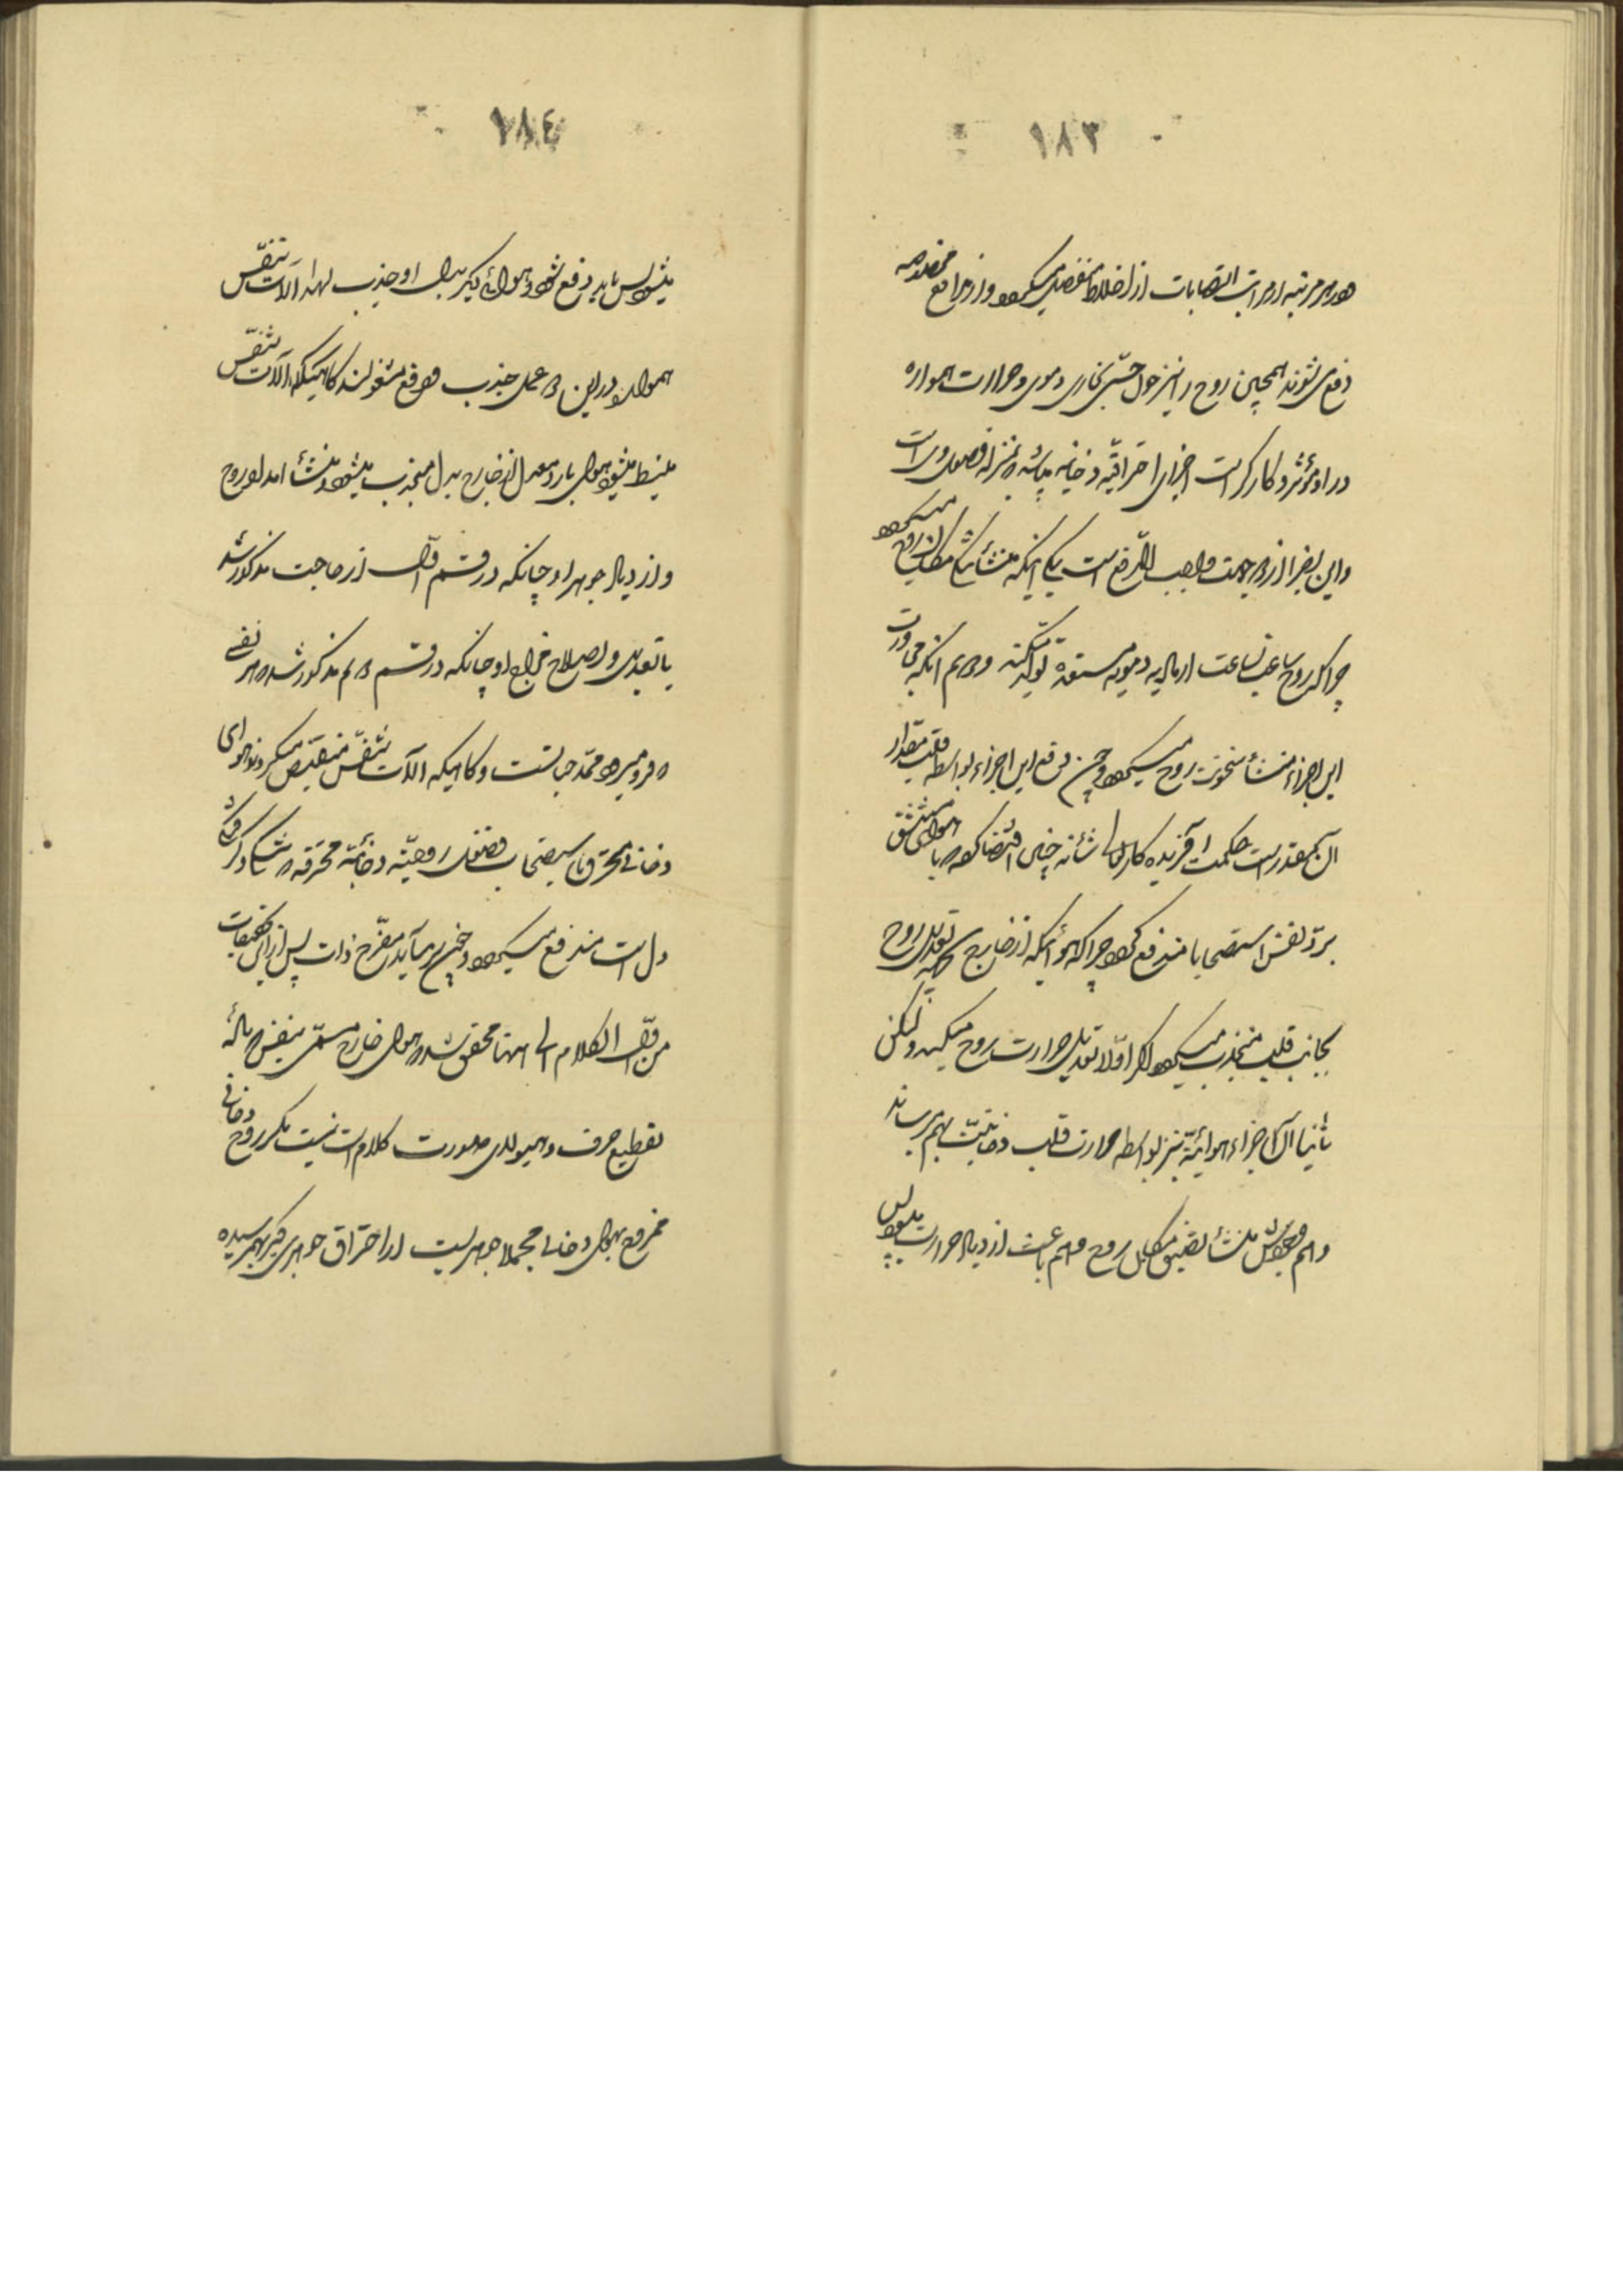 ۱۸۳
در هر مرتبه از مراتب انقلابات از اخلاط منفصل میگردد و از مدافع مخصوصه
دفع می‌شوند همچنین روح را نیز چون جسمی بخاری و حرارت همواره
در او مؤثر و کارگر است اجزای احتراقیه دخانیه میباشد که بمنزله فضول وی است
و این بخار از دو جهت واجب الدفع است یکی اینکه منشأ مکان روح میگردد
چرا که روح ساعت بساعت از ماده دمویه مستعده تولد میکند و دوم آنکه مجاورت
این اجزاء منشأ سخونت روح میگردد و چون دفع این اجزاء بواسطه قلت مقدار
حکمت آفریده کار تعالی شأنه چنین اقتضا کرد که با هوای مستنشق
برد نفس استصحابا مندفع گردد چرا که هوائیکه از خارج بجهة تعدیل روح
بجانب قلب منجذب میگردد اگر اولا تعدیل حرارت روح میکند ولیکن
ثانیا آن اجزاء هوائیه نیز بواسطه حرارت قلب دخانیت بهم میرساند
و هم منشأ تضییق مکان روح و هم باعث ازدیاد حرارت میشود پس
۱۸٤
میشود پس باید دفع شود و هوای دیگر بدل او جذب لهذا آلات تنفس
همواره در این دو عمل جذب و دفع مشغولند گاهیکه آلات تنفس
منبسط میشود هوای بارد معدل از خارج بدل منجذب میشود منشأ امداد روح
و ازدیاد جوهر او چنانکه در قسم اول از حاجت مذکور شد
یا تعدیل و اصلاح مزاج او چنانکه در قسم دوم مذکور شد هر نفسی
که فرو میرود ممد حیاتست و گاهیکه آلات تنفس منقبض میگردند هوای
دخانی محترق با استصحاب فضول روحیه دخانیه محترقه که
دل است مندفع میگردد و چون برمیآید مفرح ذات پس از این تحقیقات
من اول الکلام الی هنا محقق شد که هوای خارج مسمی بنفس که ماده
تقطیع حرف و هیولای صورت کلام است نیست مگر روح دخانی
ممزوج بهوای دخانی مجملا جوهریست از احتراق جوهری دیگر بهم رسیده